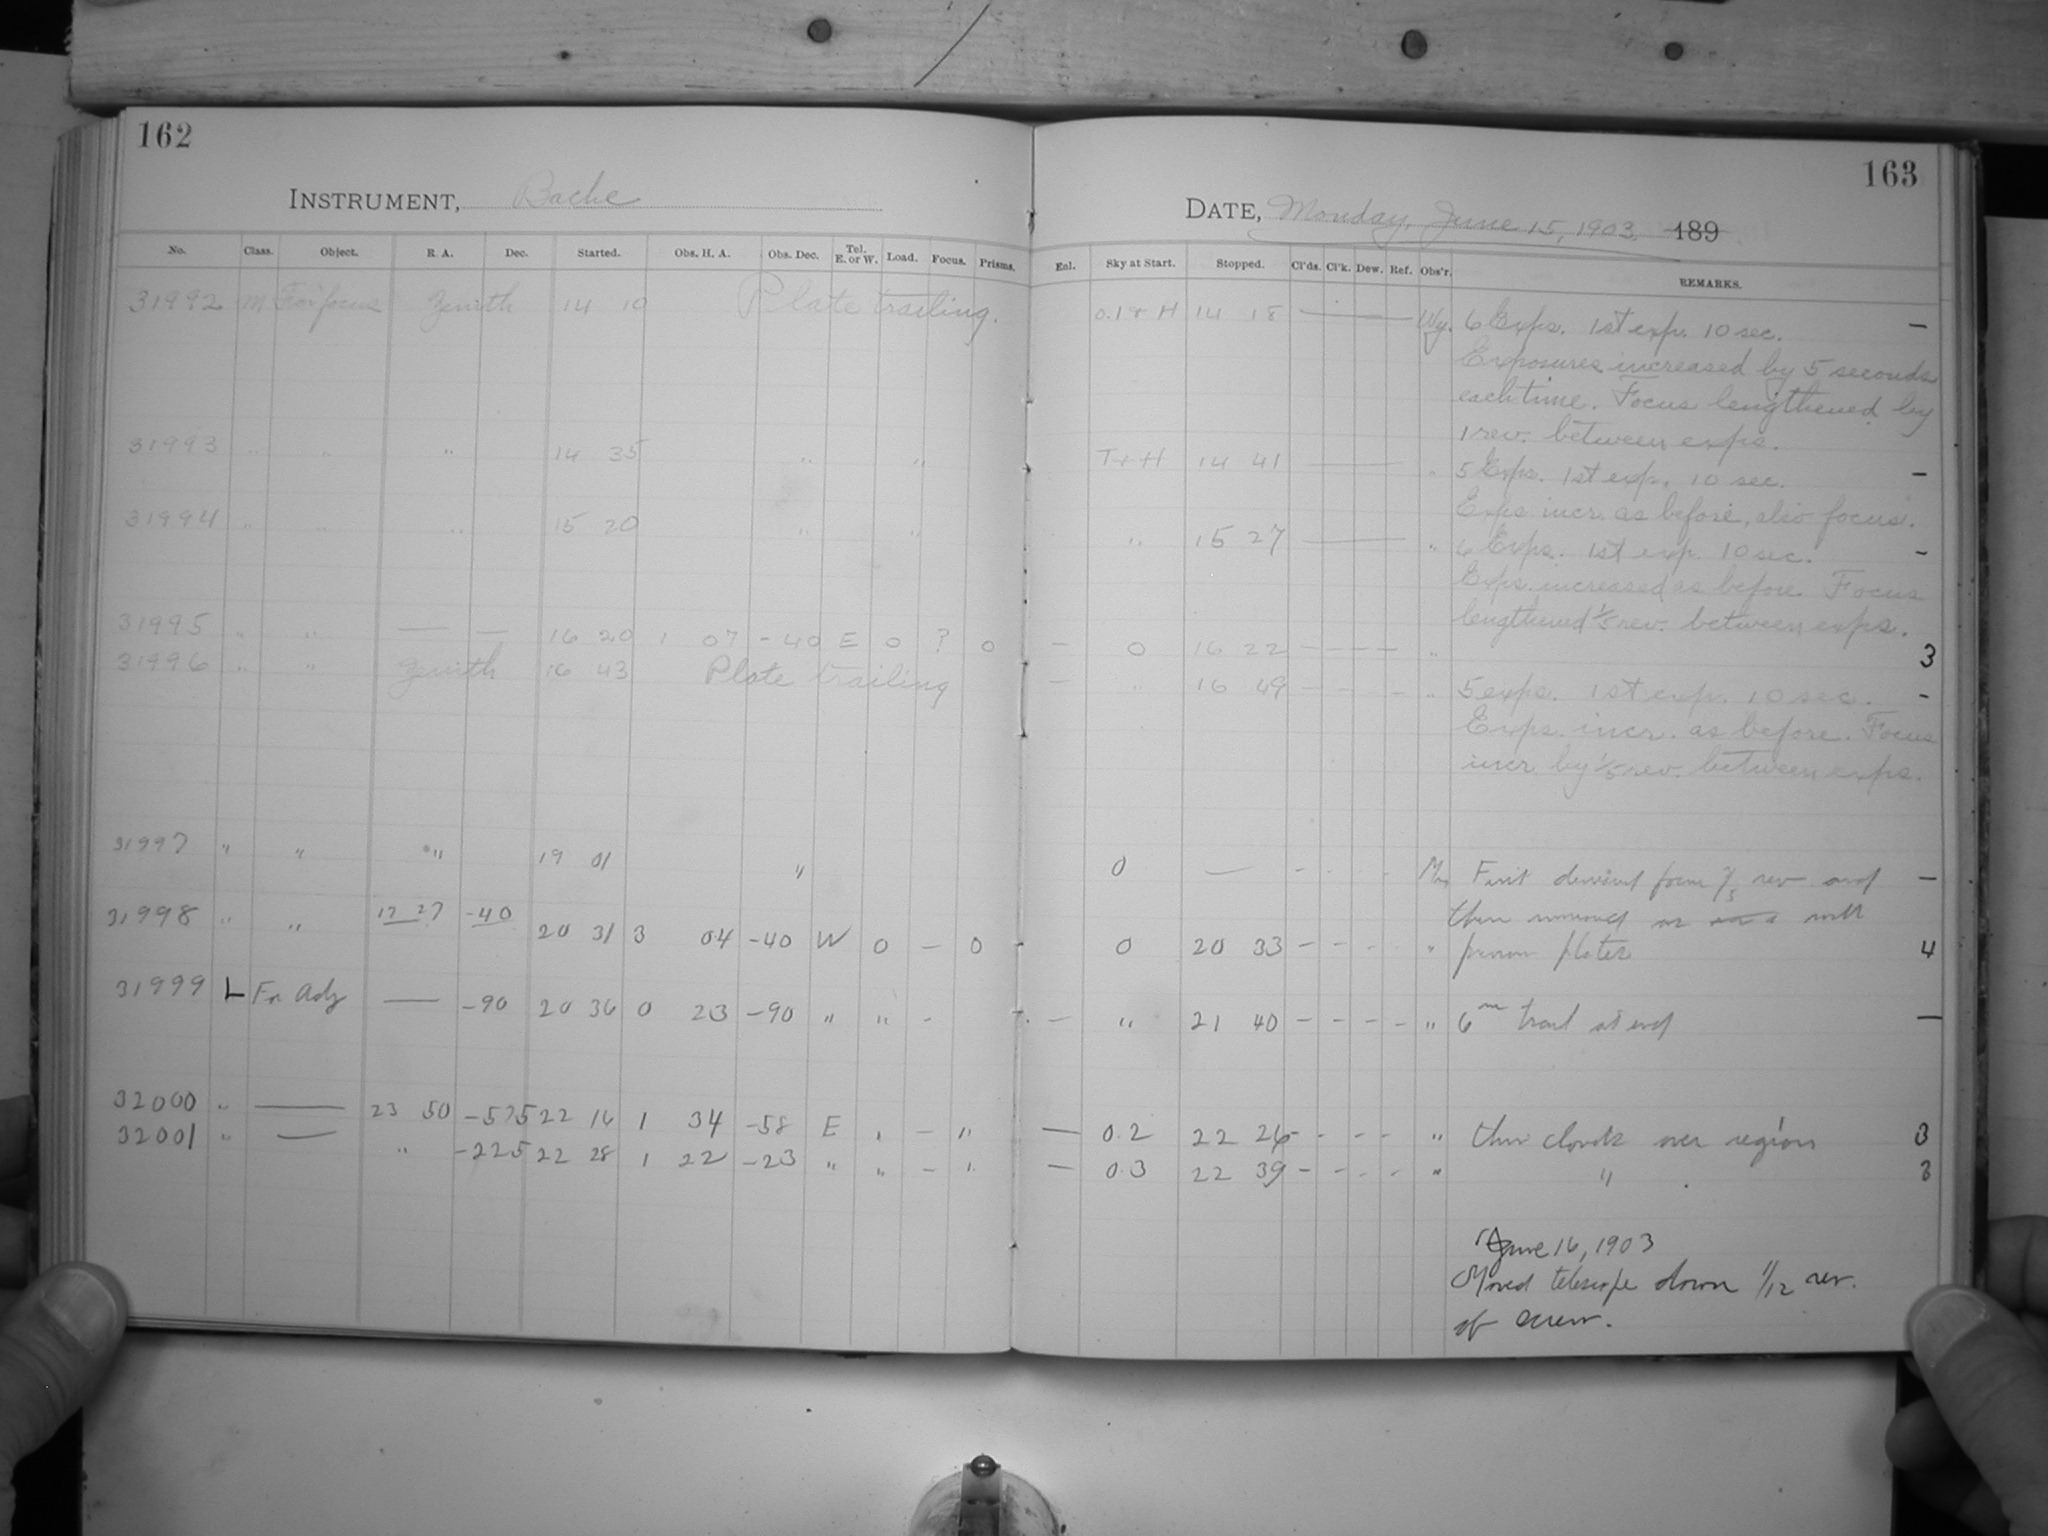 162
INSTRUMENT, Bache
No. Class. Object. R. A. Dec. Started. Obs. H. A. Obs. Dec. Tel. E. or W. Load. Focus. Prisms.
31992 M For focus Zenith 14 10 Plate trailing.
31993 " " " 14 35 " "
31994 " " " 15 20 " "
31995 " " — — 16 20 1 07 -40 E 0 ? 0
31996 " " Zenith 16 43 Plate trailing
31997 " " " 19 01 "
31998 " " 17 27 -40 20 31 3 04 -40 W 0 — 0
31999 L For Adj — -90 20 36 0 23 -90 " " -
32000 " — 23 50 -57 5 22 16 1 34 -58 E " — "
32001 " — " -22 5 22 28 1 22 -23 " " - "
163
DATE, Monday, June 15, 1903. 189
Enl. Sky at Start. Stopped. Cl'ds. Cl'k. Dew. Ref. Obs'r. REMARKS.
14 18 — Wy. 6 Exps. 1st exp. 10 sec. —
Exposures increased by 5 seconds
each time. Focus lengthened by
1 rev. between exps.
T+H 14 41 — " 5 Exps. 1st exp. 10 sec. —
Exps. incr. as before, also focus.
" 15 27 — " 6 Exps. 1st exp. 10 sec. -
Exps. increased as before. Focus
lengthened 1/5 rev. between exps.
— 0 16 22 — — — " 3
— " 16 49 - - - - " 5 exps. 1st exp. 10 sec. -
Exps. incr. as before. Focus
incr by 1/5 rev. between exps.
0 — - - - - First focus 1/5 rev and
then
- 0 20 33 - - - - " plates 4
— " 21 40 - - - - " 6m trail at end —
— 0.2 22 26 - - - - " thin clouds over region 3
— 0.3 22 39 - - - - " " 3
June 16, 1903
Moved telescope down 1/12 rev.
of screw.